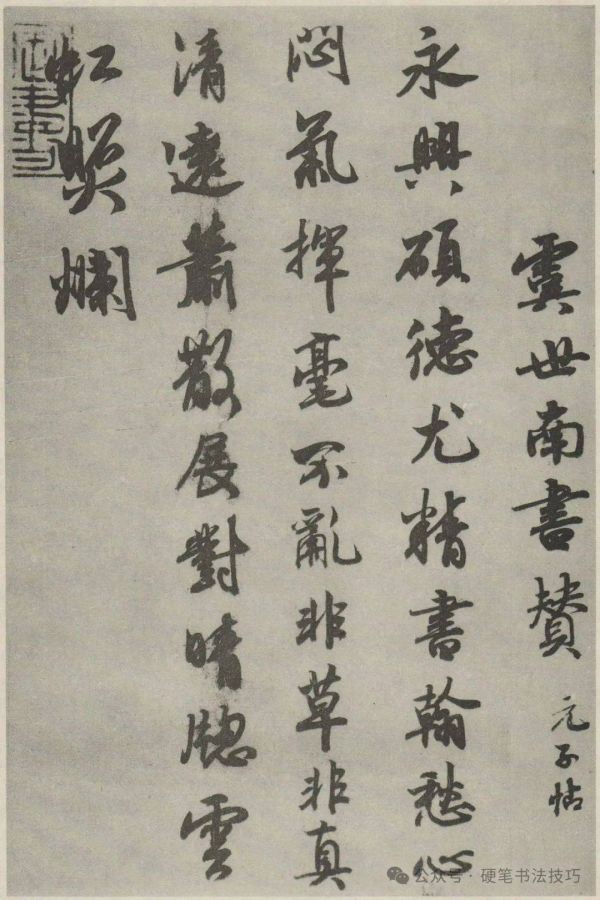 虞世南書賛 元子帖
永興碩德尤精書翰愁心
悶氣揮毫不亂非草非真
清遠蕭散展對晴牕雲
虹照爛
公众号 · 硬笔书法技巧